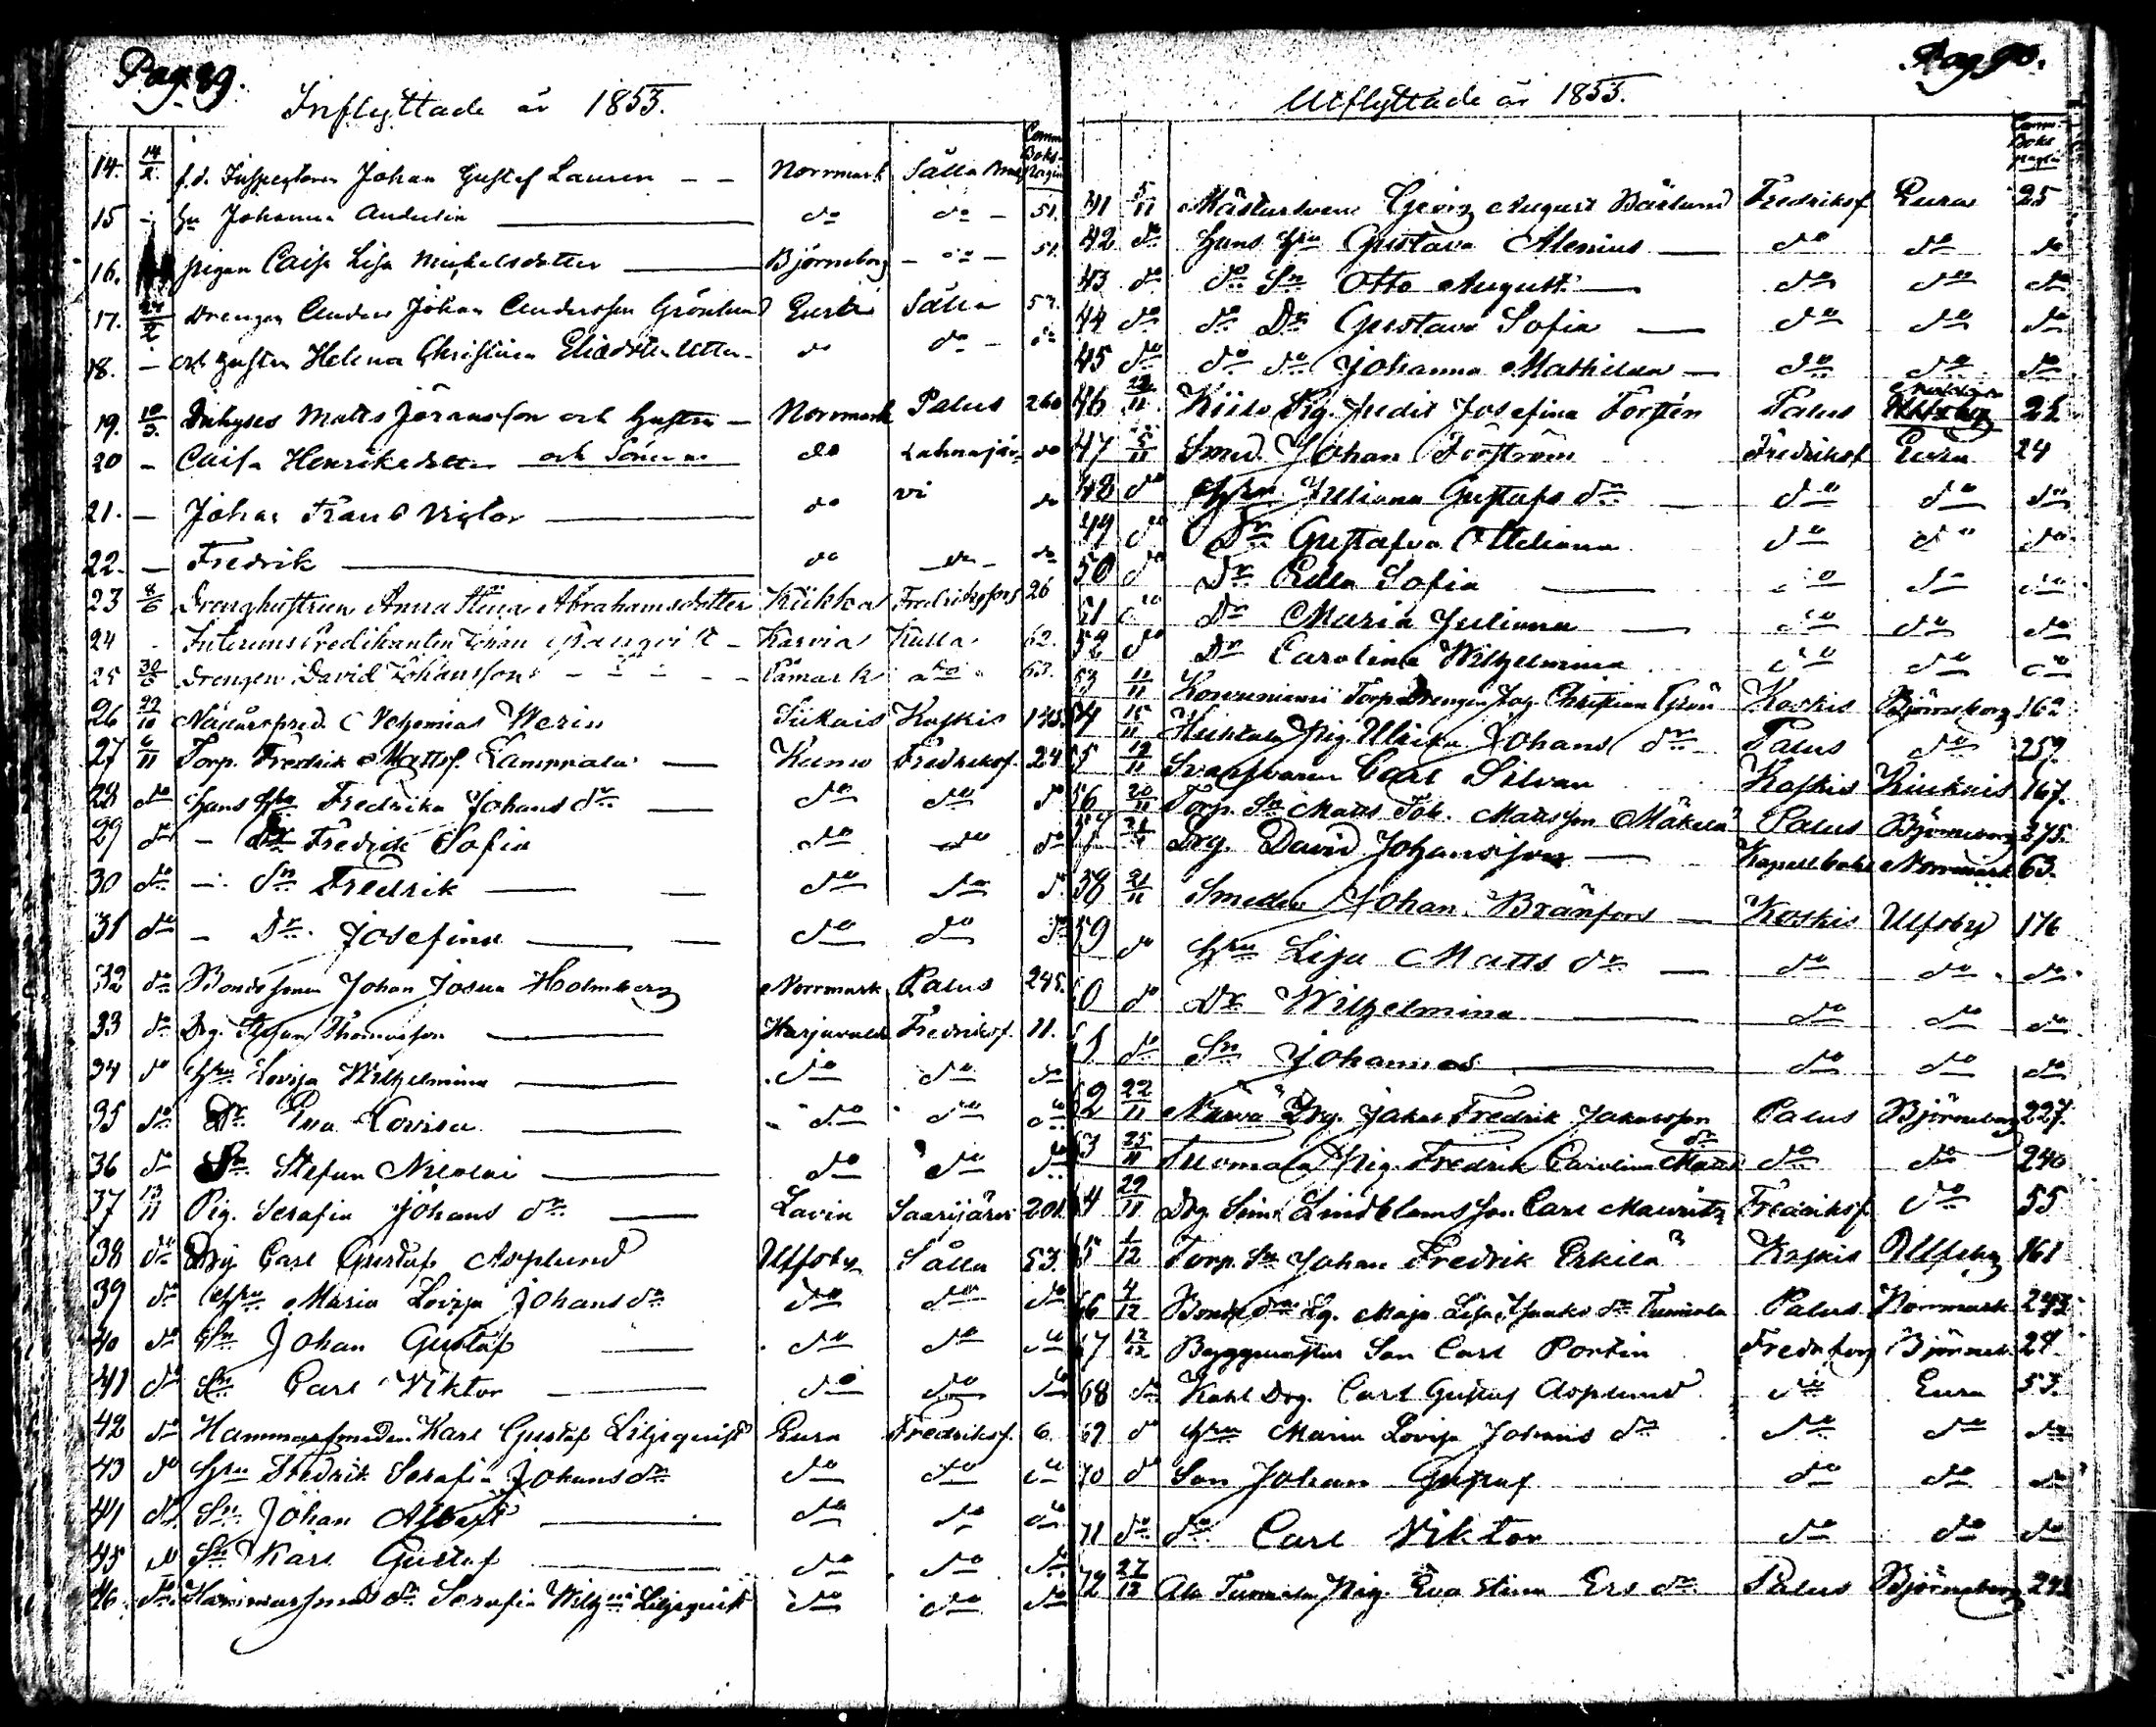 Pag. 89.
Inflyttade år 1853.
Comm. Boks Pagin
14. 14/2. f.d. Inspectoren Johan Gustaf Lauren - - Norrmark Sålla
15 - hu Johanna Anderlin do do - 51.
16. pigan Caisa Lisa Mickelsdotter Björneborg - do - 51.
17. 24/2 Drengen Anders Johan Andersson Grönlund Sålla 57.
18. - och hustru Helena Christina do do - do
19. 10/3. Inhyses Matts Jöransson och hustru - Norrmark Palus 260
20 - Caisa Henriksdotter och Sönerna do Lahnajär- do
21. - Johan Frans Victor do vi do
22. - Fredrik do do - do
23 8/6 Drenghustrun Anna Stina Abrahamsdotter Kiikka Fredriksfors 26
24 - Interims Predikanten Johan Karvia Kulla 62.
25 30/6 Drengen David Johansson - - - - Påmark do 63.
26 22/10 Nådårspred. Nehemias Werin Siikais Koskis
27 6/11 Torp. Fredrik Mattsf. Lamppala Kumo Fredriksf. 24
28 do Hans Hru Fredrika Johans dr do do do
29 do - Dr Fredrik Sofia do do do
30 do - Sn Fredrik do do do
31 do - Dr Josefina do do do
32 do Bondesonen Johan Josua Holmberg Norrmark Palus 245.
33 do Drg. Stefan Thomasson Harjavalda Fredriksf. 11.
34 do Hru Lovisa Wilhelmina do do do
35 do Dr Eva Lovisa do do do
36 do Sn Stefan Nicolai do do do
37 13/11 Pig. Serafia Johans dr Lavia Saarijärvi 201
38 do Drg Carl Gustaf Asplund Ulfsby Sålla 53.
39 do Hru Maria Lovisa Johans dr do do do
40 do Sn Johan Gustaf do do do
41 do Sn Carl Viktor do do do
42 do Hammarsmeden Karl Gustaf Liljequist Eura Fredriksf. 6.
43 do Hru Fredrik Serafia Johans dr do do do
44 do Sn Johan Albert do do do
45 do Sn Karl Gustaf do do do
46. do Hammarsmeds dr Serafia Wilhna Liljequist do do do
Pag 90.
Utflyttade år 1853.
Comm. Boks pagin
41 5/11 Mästersven Georg August Bärlund Fredriksf Eura 25
42 do Hans Hru Gustava Alenius do do do
43 do do Sn Otto August do do do
44 do do Dr Gustava Sofia do do do
45 do do do Johanna Mathilda do do do
46 Pig. Josefina Forstén Palus 22
47 5/11 Smed. Johan Forsström Fredriksf Eura 24
48 do Hru Juliana Gustafs dr do do do
49 do Dr Gustafva Ottiliana do do do
50 do Dr Edla Sofia do do do
51 do Dr Maria Juliana do do do
52 do Dr Carolina Wilhelmina do do do
53 11/11 Torp Drengen Joh. Christian Grön Koskis Björneborg 162
54 15/11 Pig. Ulrika Johans dr Palus do 259.
55 19/11 Svarfvaren Carl Silvan Koskis Kiukais 167.
56 20/11 Torp. Sn Matts Joh. Mattsson Mäkelä Palus Björneborg 275.
57 Drg. David Johansson Kapellbolet Norrmark 63.
58 21/11 Smeden Johan Bränfors Koskis Ulfsby 176
59 do Hru Lisa Matts dr do do do
60 do Dr Wilhelmina do do do
61 do Sn Johannes do do do
62 22/11 Drg. Jakob Fredrik Jakobsson Palus Björneborg 227.
63 25/11 Tuomala Pig. Fredrik Carolina Matts dr do do 240
64 29/11 Drg. Sim. Lindblomsson Carl Mauritz Fredriksf do 55
65 1/12 Torp. Sn Johan Fredrik Erkilä Koskis Ulfsby 161
66 4/12 Bonde dr Maja Lisa dr Tuomala Palus Norrmark 243
67 12/12 Byggmästar Son Carl Portin Fredrfors Björneb. 21.
68 do Kohl Drg. Carl Gustaf Asplund do Eura 53.
69 do Hru Maria Lovisa Johans dr do do do
70 do Son Johan Gustaf do do do
71 do do Carl Viktor do do do
72 27/12 Ala Tuomala Pig. Eva Stina Ers dr Palus Björneborg 243